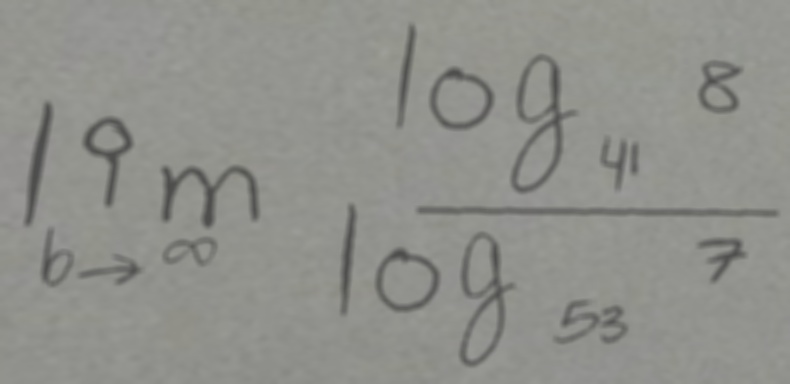 lim b→∞ log₄₁ 8 / log₅₃ 7